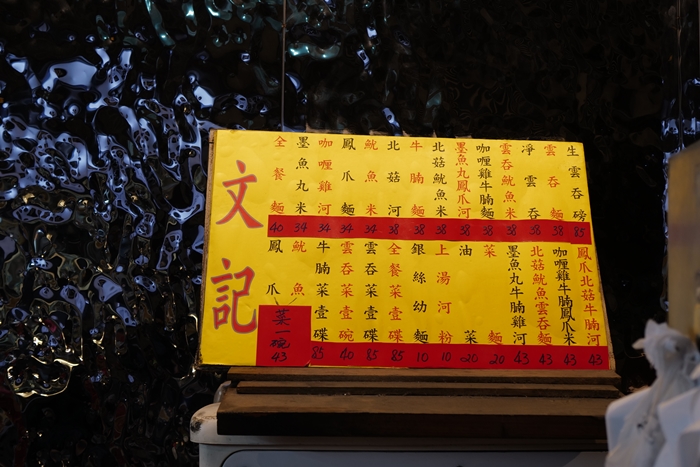 文記
全餐麵 40
墨魚丸米 34
咖喱雞河 34
鳳爪麵 34
魷魚米 34
北菇河 38
牛腩麵 38
北菇魷魚米 38
墨魚丸鳳爪河 38
咖喱雞牛腩麵 38
雲吞魷魚米 38
淨雲吞 38
雲吞麵 38
生雲吞磅 85
鳳爪
魷魚
菜一碗 43
牛腩菜壹碟 85
雲吞菜壹碗 40
雲吞菜壹碟 85
全餐菜壹碟 85
銀絲幼麵 10
上湯河粉 10
油菜 20
菜麵 20
墨魚丸牛腩雞河 43
北菇魷魚雲吞麵 43
咖喱雞牛腩鳳爪米 43
鳳爪北菇牛腩河 43